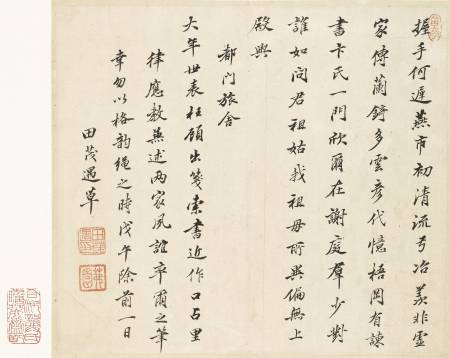 握手何遲燕市初清流弓冶羨非虛
家傳蘭錡多雲彥代憶梧岡有諫
書卞氏一門欣爾在謝庭羣少對
誰如問君祖姑我祖母所與偏無上
殿輿
都門旅舍
大年世表枉顧出箋索書近作口占里
律應教兼述兩家風誼卒爾之筆
幸勿以格韵繩之時戊午除前一日
田茂遇草